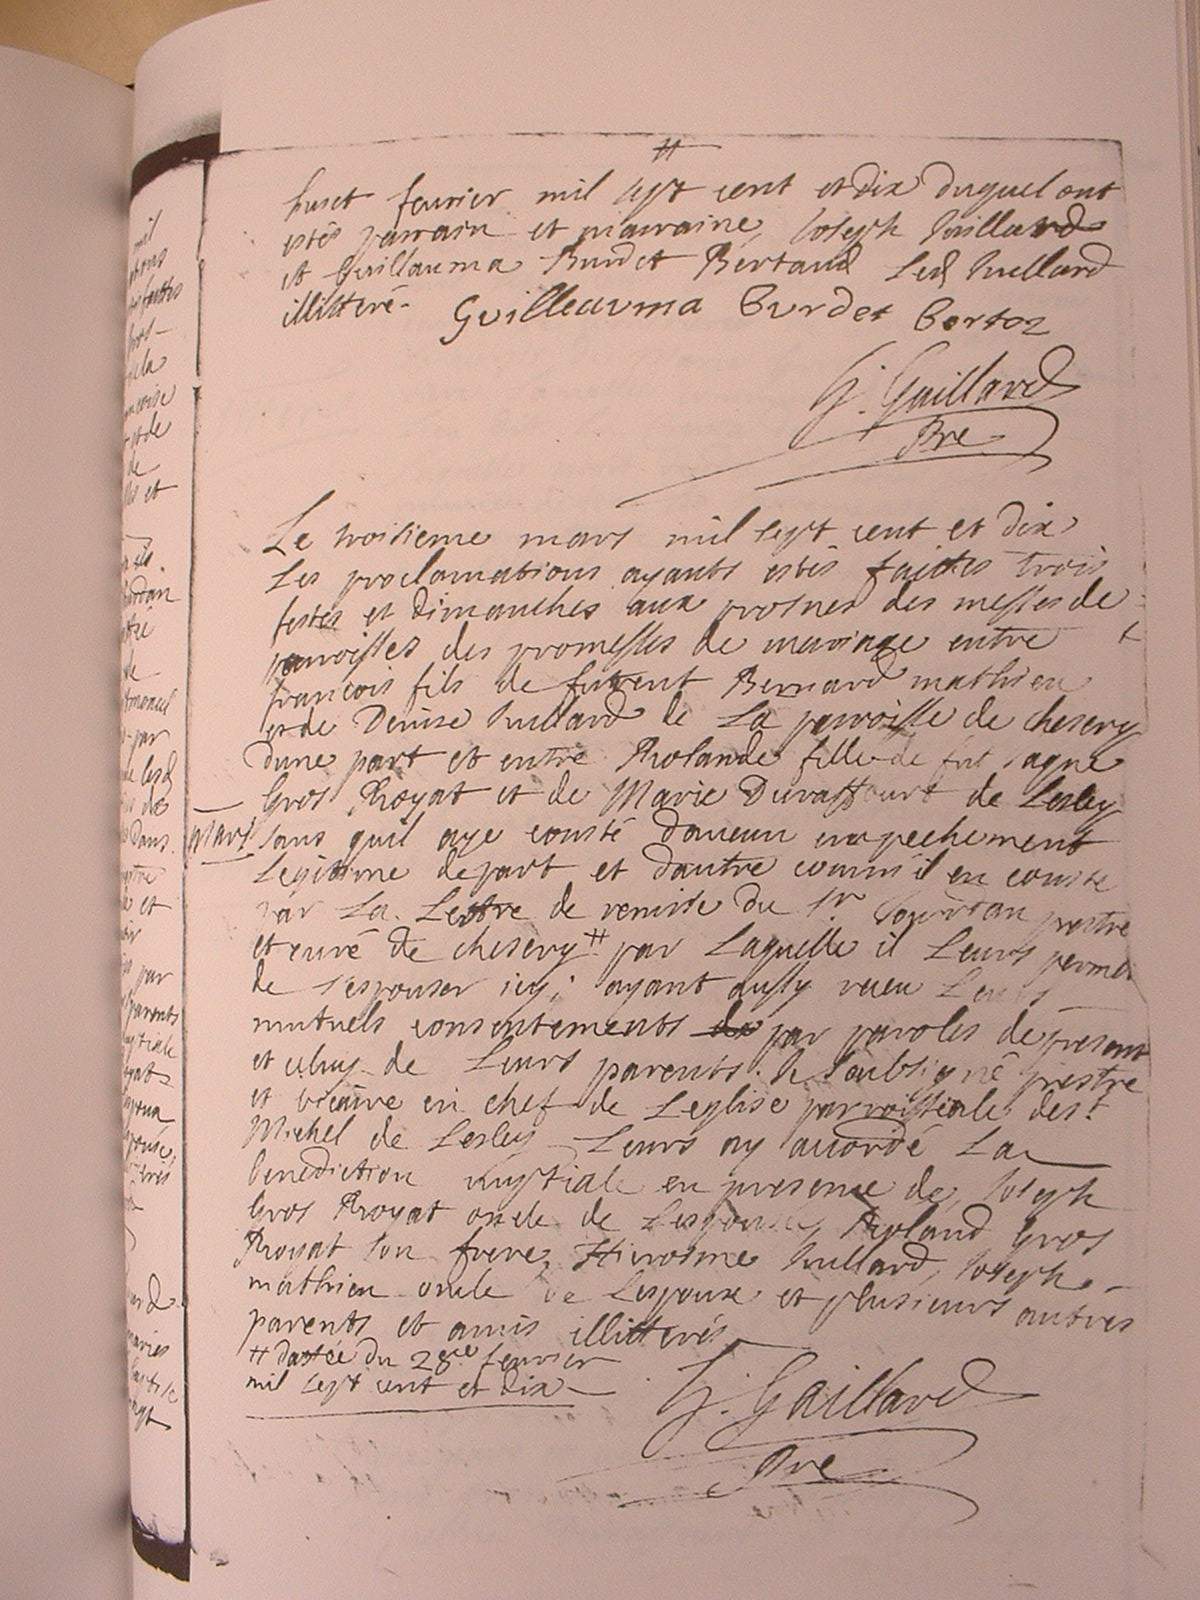 huict feurier mil sept cent et dix duquel ont
estés parrain et marraine, Joseph Juillard
et Guillauma Burdet Bertand Led Juillard
illitteré.
Guilleauma Burdet Berton
G. Gaillard
Pre
Le troisieme mars mil sept cent et dix
Les proclamations ayants estés faittes trois
festes et dimanches aux prosnes des messes de
parroisses des promesses de mariage entre
francois fils de furent Bernard mathieu
et de Denise Juillard de La parroisse de chesery
dune part et entre Rolande fille de fut
Gros Royat et de Marie Duraffourt de Lesley
Mars
sans quil aye consté daucun empechement
Legitime depart et dautre comm'il en conste
par La Lettre de remise du Sr Jourdan prestre
et curé de chesery # par Laquelle il Leurs permet
de s'espouser icy; ayant aussy receu Leurs
mutuels consentements par paroles de présent
et celuy de Leurs parents. Je soubsigné prestre
et vicaire en chef de Leglise parroissiale de st
Michel de Lesley Leurs ay accordé La
benediction nuptiale en presence de, Joseph
Gros Royat oncle de Lespouse, Roland Gros
Royat son frere, Hierosme Juillard, Joseph
mathieu oncle de Lespoux et plusieurs autres
parents et amis illitterés
# dattée du 28me feurier
mil sept cent et dix
G. Gaillard
Pre